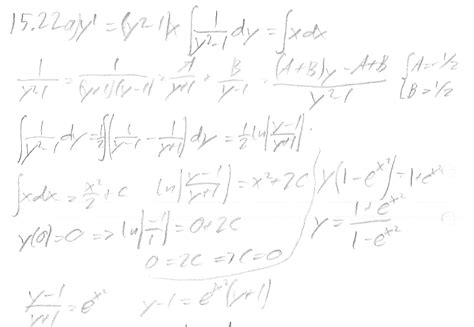 15.22 a) y' = (y²-1)x ∫ 1/(y²-1) dy = ∫ x dx
1/(y²-1) = 1/((y+1)(y-1)) = A/(y+1) + B/(y-1) = ((A+B)y - A+B)/(y²-1) { A = -1/2 B = 1/2
∫ 1/(y²-1) dy = 1/2 ∫ (1/(y-1) - 1/(y+1)) dy = 1/2 ln|(y-1)/(y+1)|.
∫ x dx = x²/2 + C ln|(y-1)/(y+1)| = x² + 2C
y(0) = 0 => ln|-1/1| = 0 + 2C
0 = 2C => C = 0
(y-1)/(y+1) = e^x² y-1 = e^x² (y+1)
y(1-e^x²) = 1+e^x²
y = (1+e^x²)/(1-e^x²)